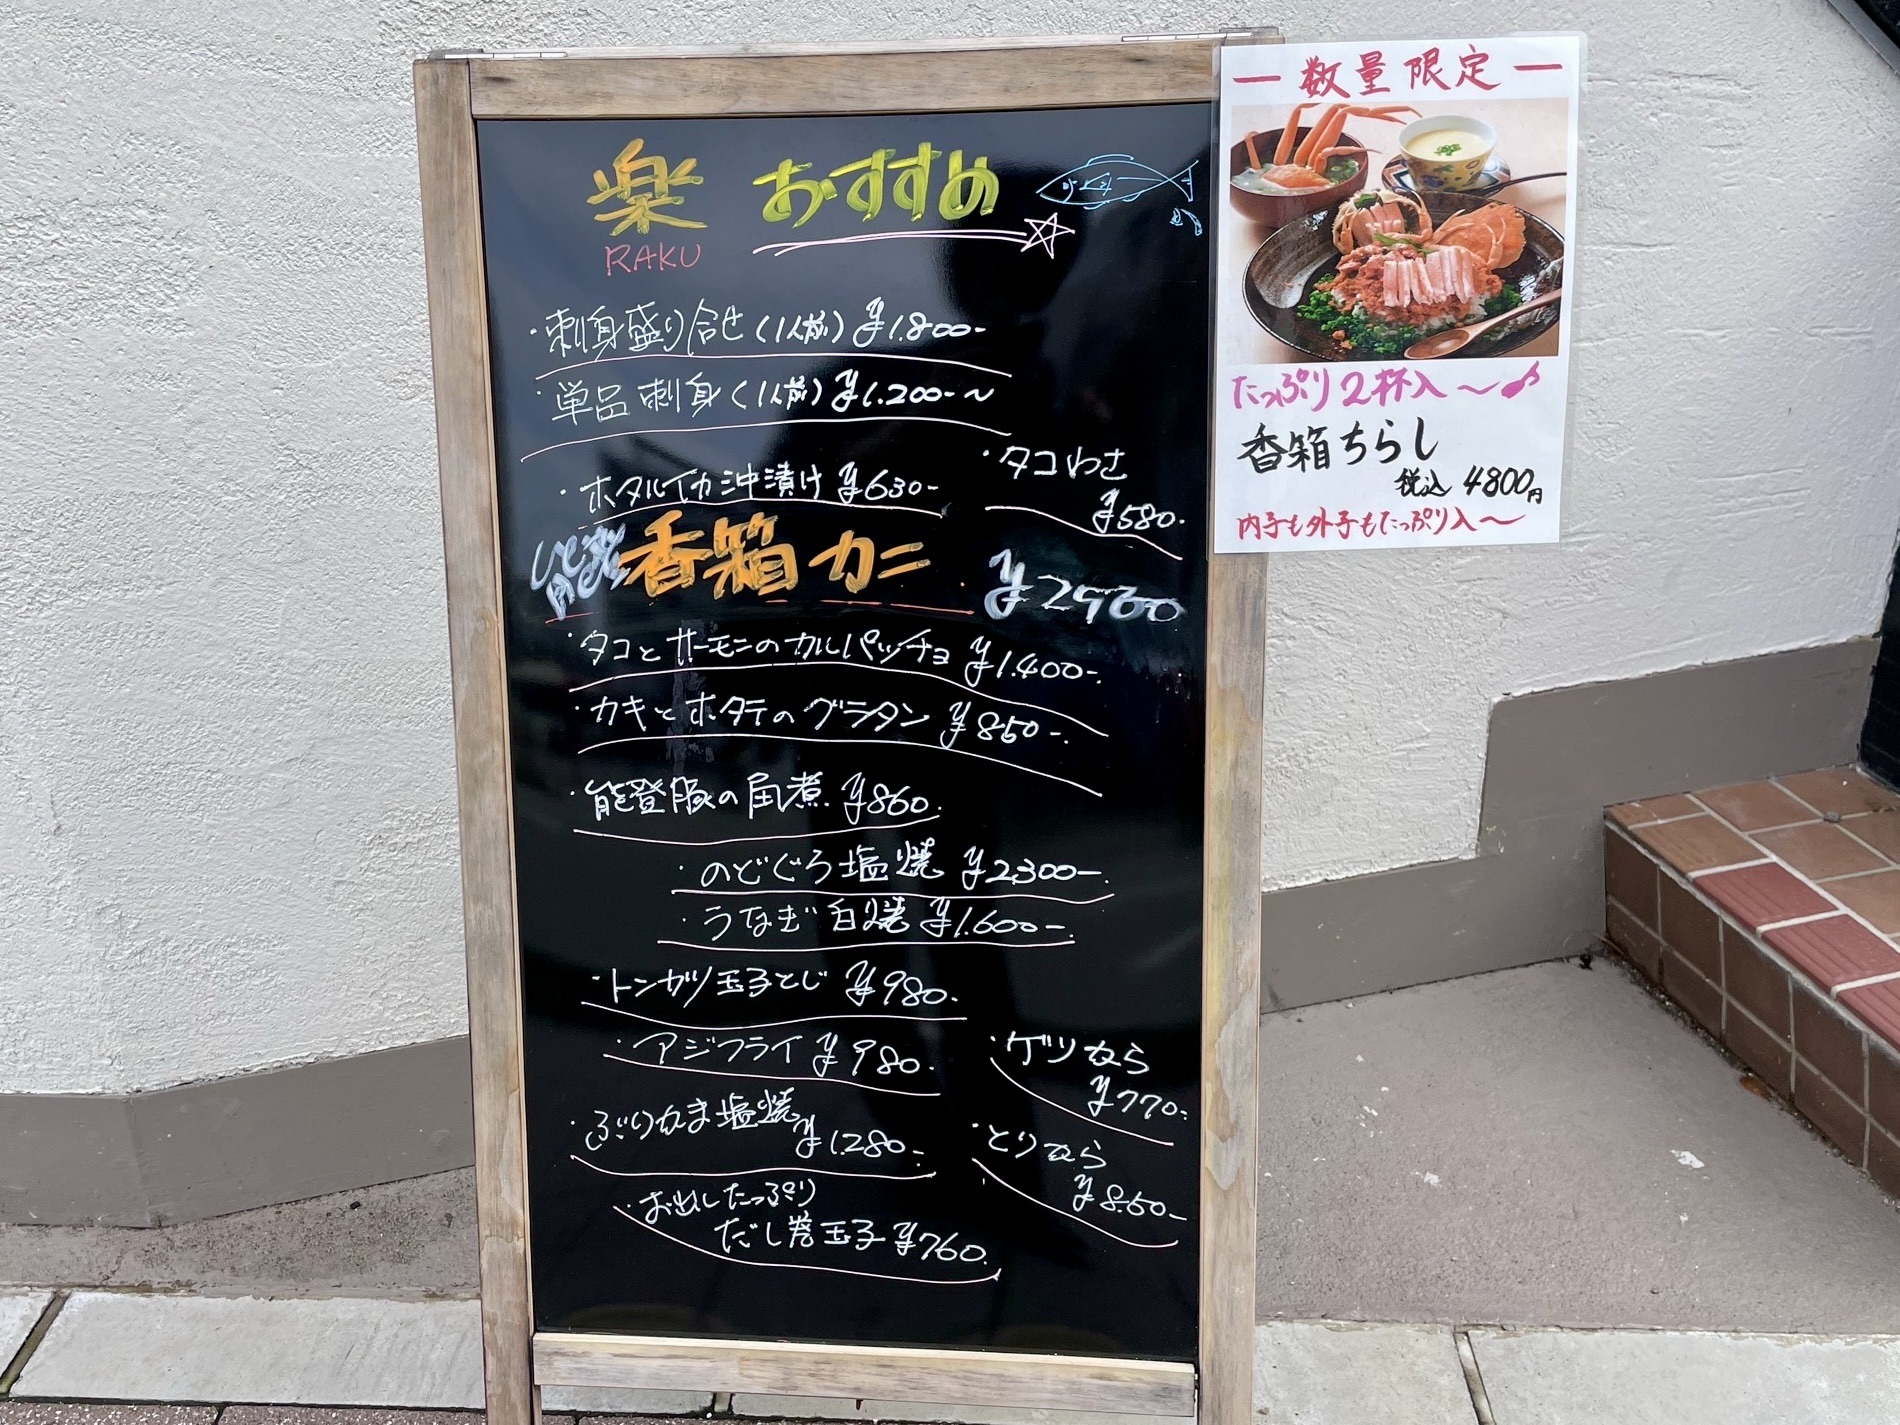 楽 おすすめ
RAKU
・刺身盛り合せ(1人前) ¥1.800-
・単品刺身(1人前) ¥1.200-~
・ホタルイカ沖漬け ¥630-
・タコわさ
¥580-
香箱カニ
・タコとサーモンのカルパッチョ ¥1.400-
・カキとホタテのグラタン ¥850-
・能登豚の角煮 ¥860.
・のどぐろ塩焼 ¥2300-
・うなぎ白焼 ¥1.600-
・トンカツ玉子とじ ¥980.
・アジフライ ¥980.
・ゲソなら
¥770-
・ぶりかま塩焼
¥1.280-
・とりなら
¥850-
・お出したっぷり
だし巻玉子 ¥760.
ー数量限定ー
たっぷり2杯入~♪
香箱ちらし
税込 4800円
内子も外子もたっぷり入~